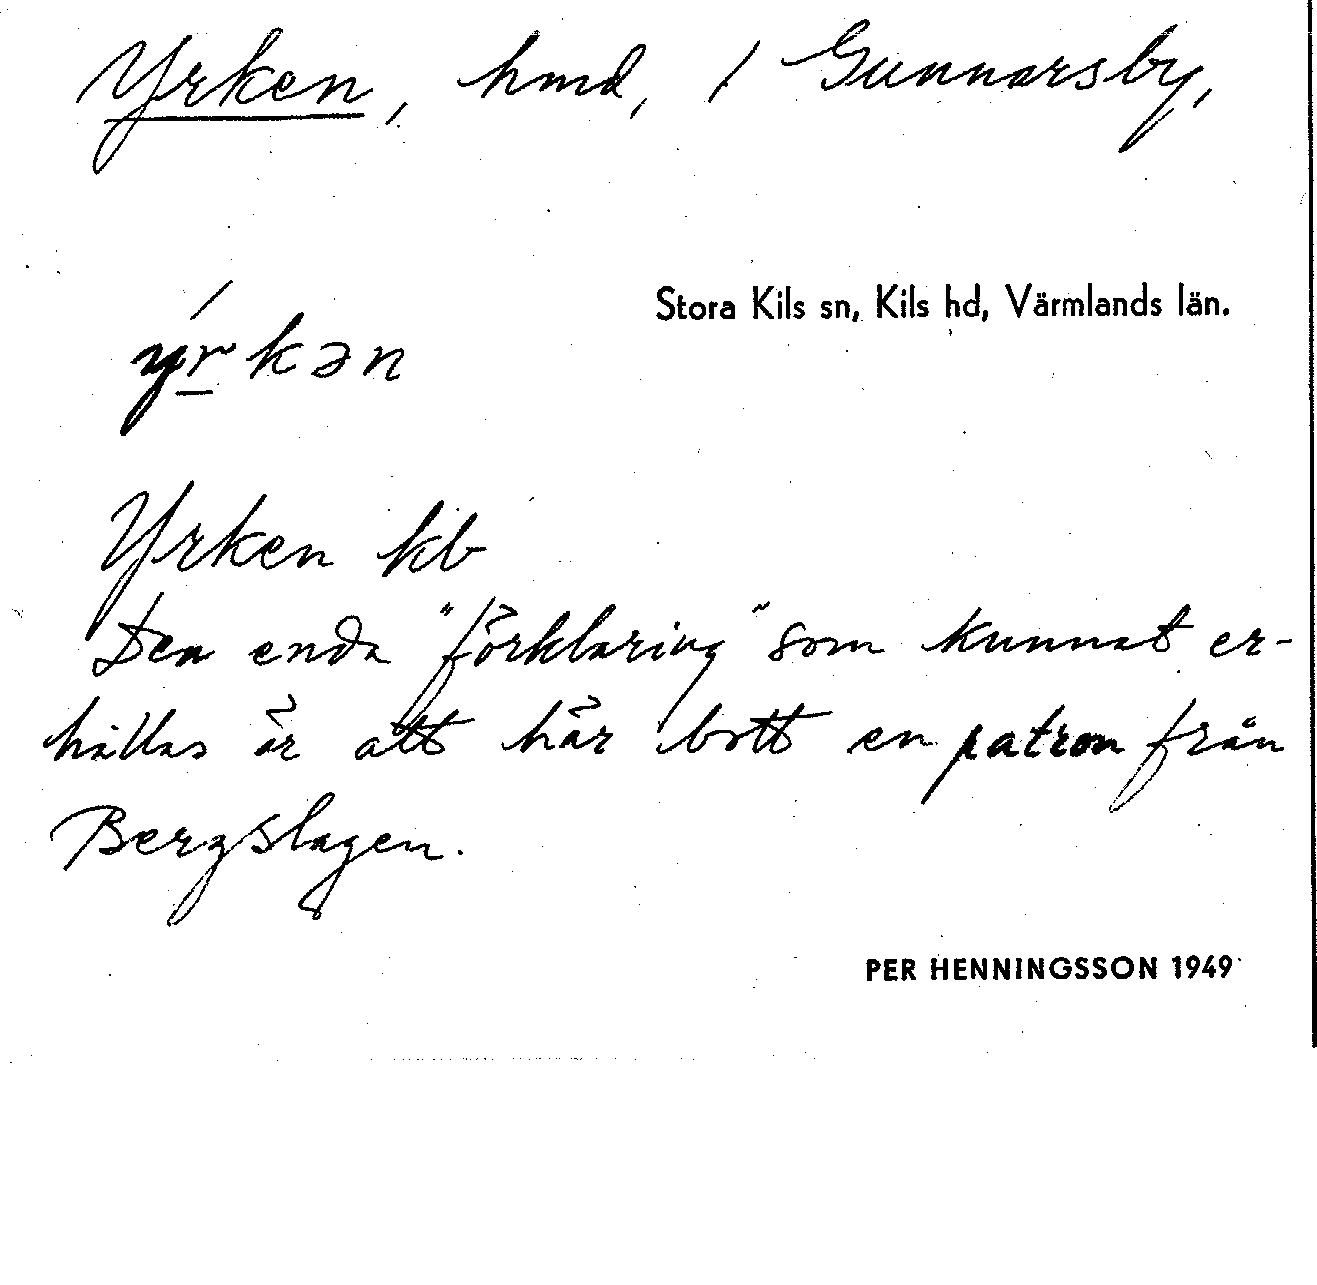 Yrken, hmd, / Gunnarsby,
Stora Kils sn, Kils hd, Värmlands län.
ýrkən
Yrken kb
Den enda "förklaring" som kunnat er-
hållas är att här bott en patron från
Bergslagen.
PER HENNINGSSON 1949